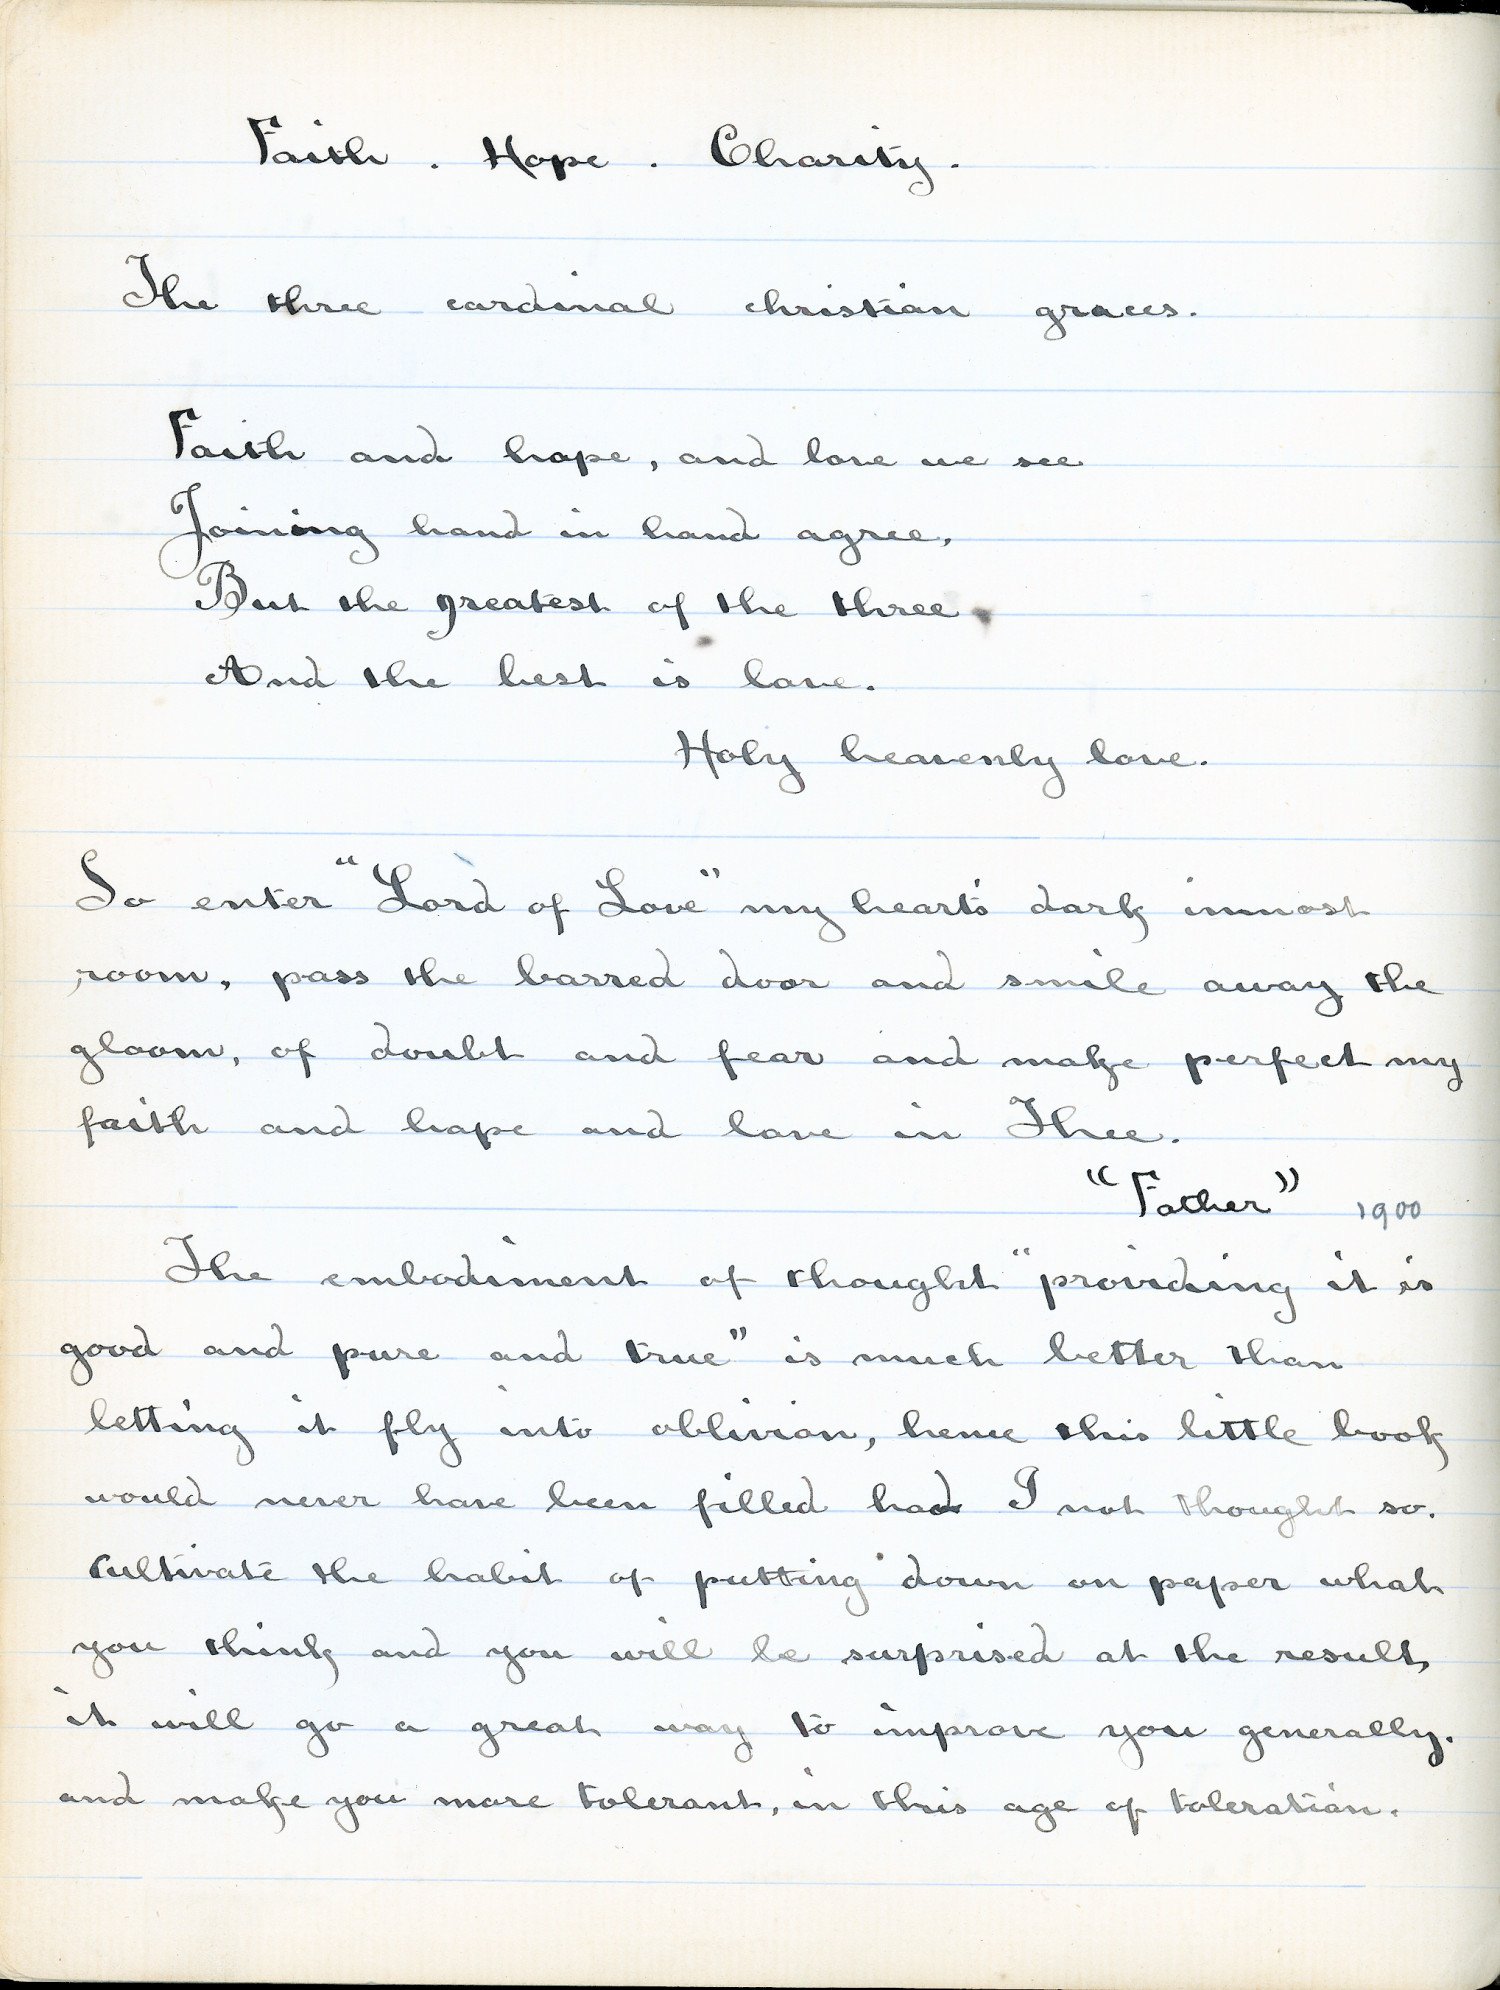 Faith . Hope . Charity .
The three cardinal christian graces.
Faith and hope, and love we see
Joining hand in hand agree,
But the greatest of the three
And the best is love.
Holy heavenly love.
So enter "Lord of Love" my heart's dark inmost
room, pass the barred door and smile away the
gloom, of doubt and fear and make perfect my
faith and hope and love in Thee.
"Father" 1900
The embodiment of thought "providing it is
good and pure and true" is much better than
letting it fly into oblivion, hence this little book
would never have been filled had I not thought so.
Cultivate the habit of putting down on paper what
you think and you will be surprised at the result,
it will go a great way to improve you generally.
and make you more tolerant, in this age of toleration.